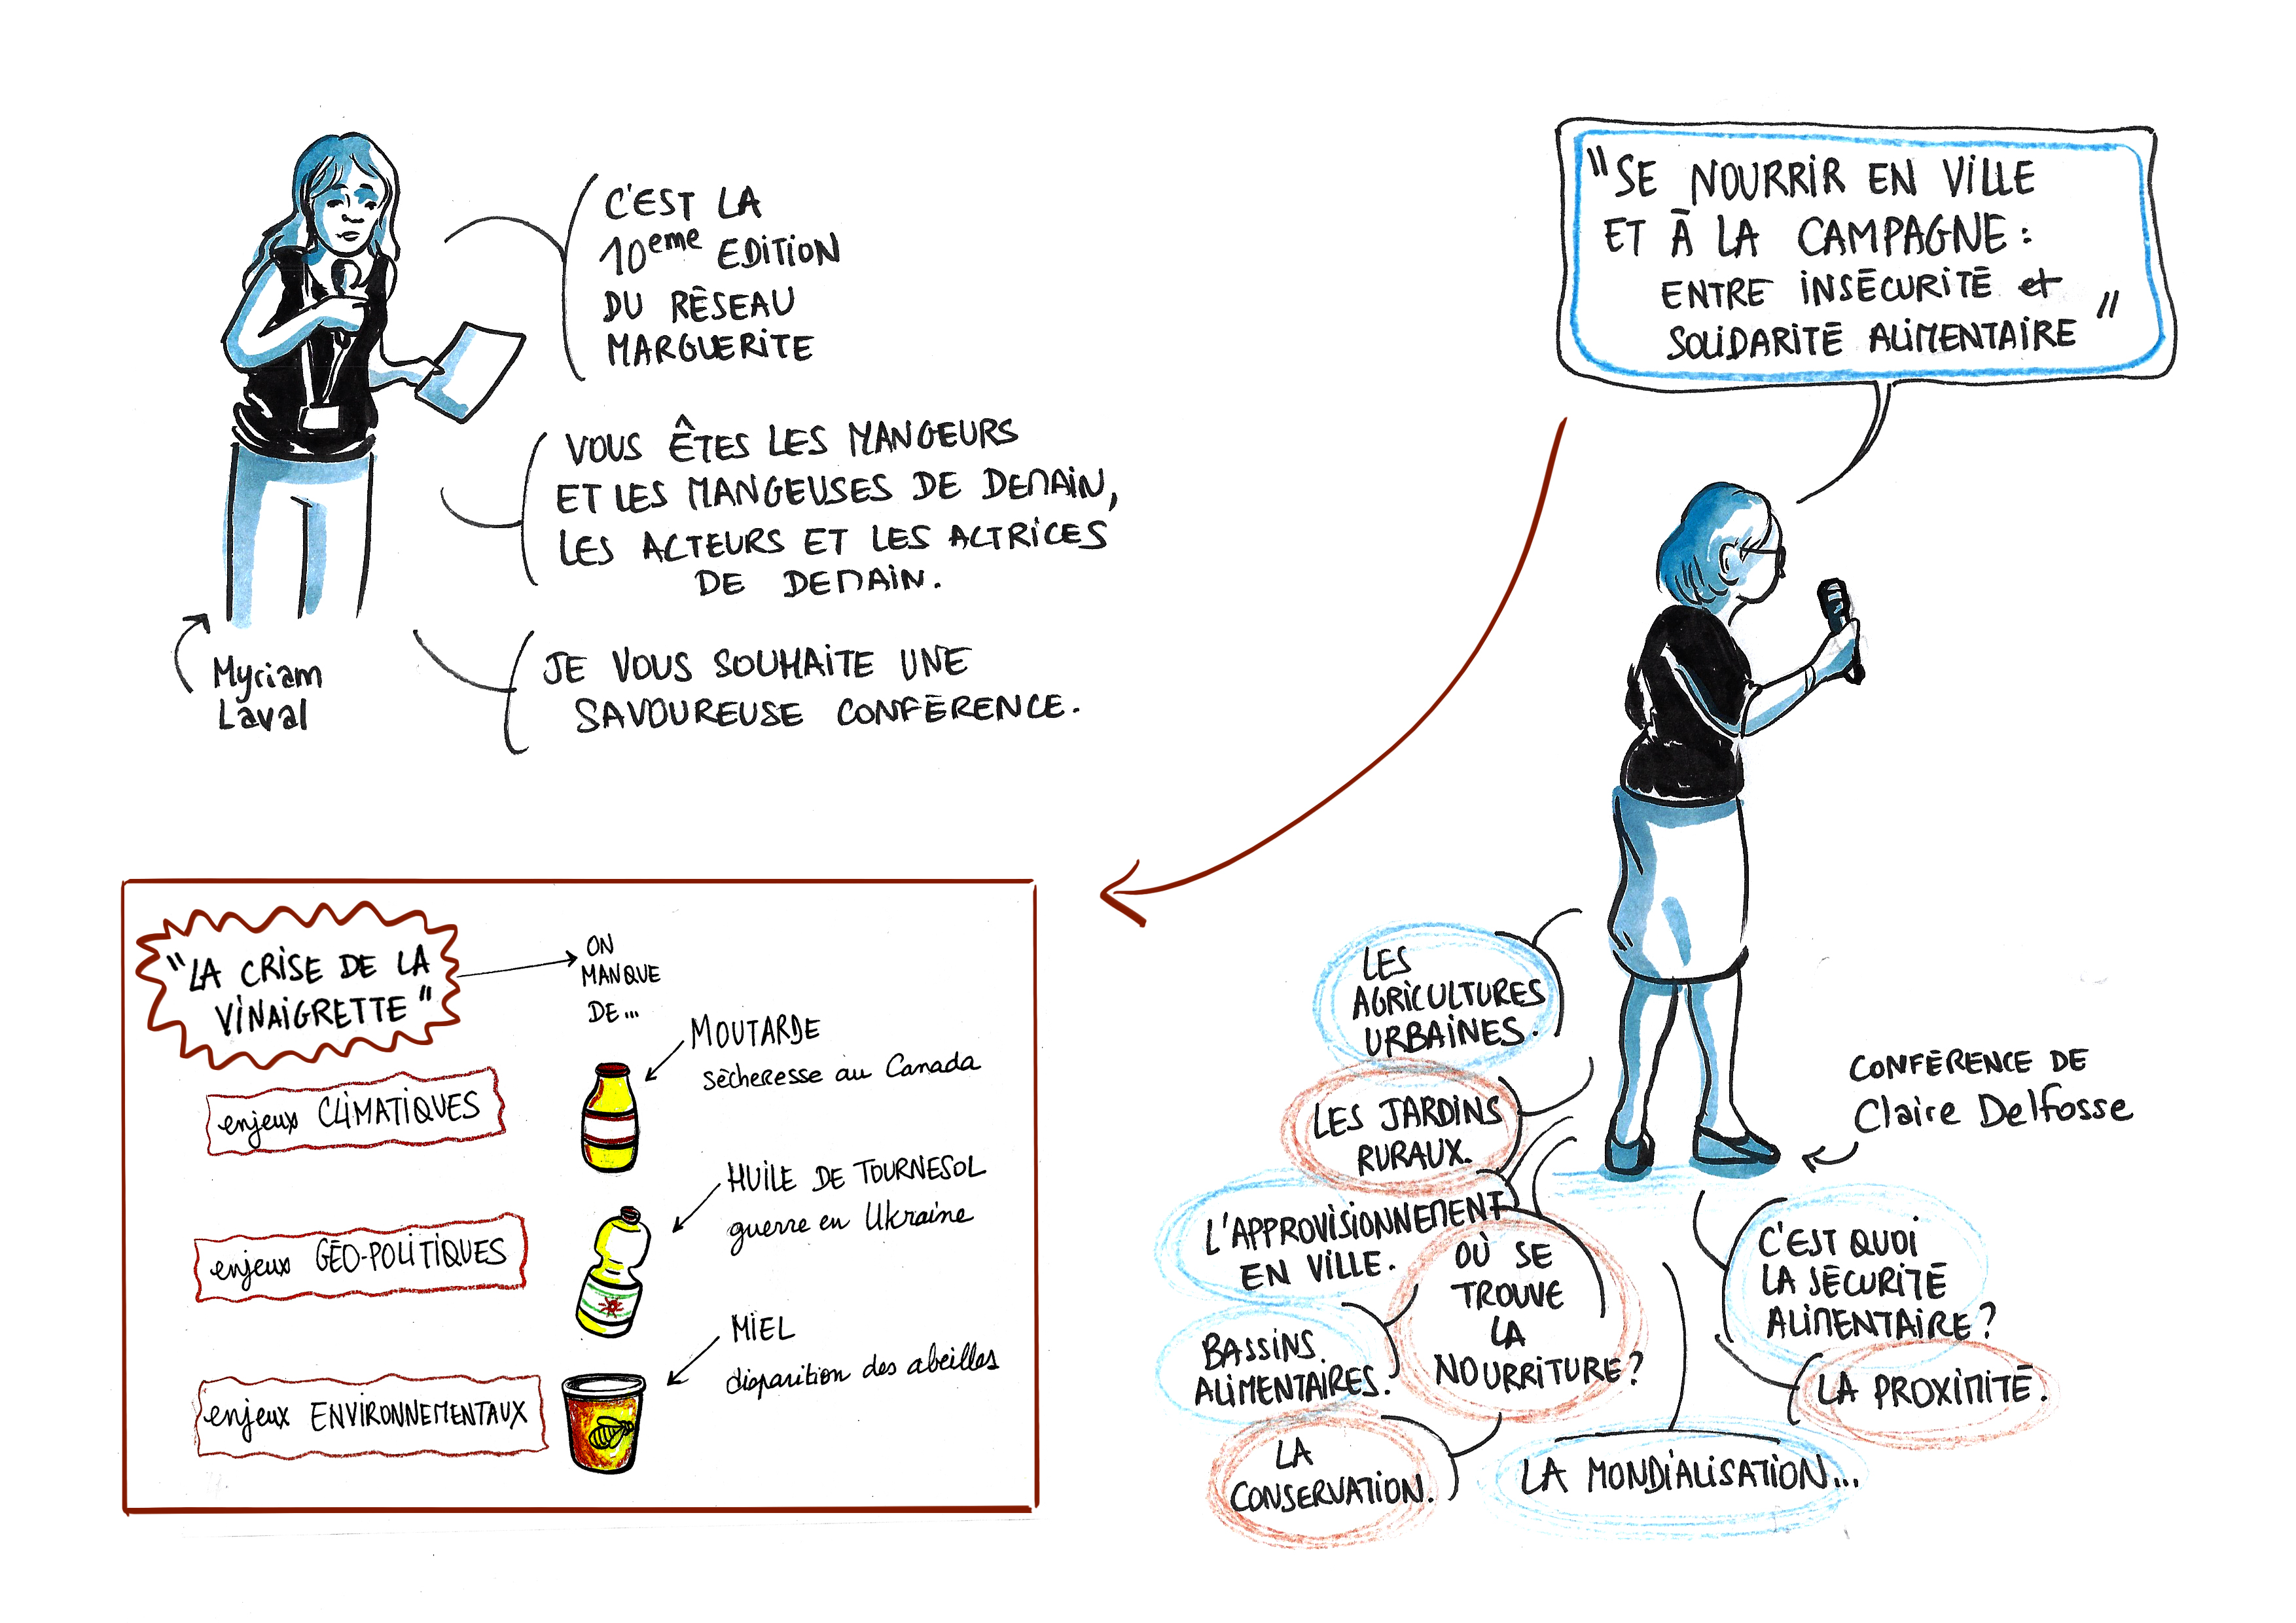 C'EST LA
10eme EDITION
DU RÉSEAU
MARGUERITE
VOUS ÊTES LES MANGEURS
ET LES MANGEUSES DE DENAIN,
LES ACTEURS ET LES ACTRICES
DE DENAIN.
JE VOUS SOUHAITE UNE
SAVOUREUSE CONFÉRENCE.
Myriam
Laval
"SE NOURRIR EN VILLE
ET À LA CAMPAGNE :
ENTRE INSÉCURITÉ et
SOLIDARITÉ ALIMENTAIRE"
"LA CRISE DE LA
VINAIGRETTE"
ON
MANQUE
DE...
MOUTARDE
sécheresse au Canada
enjeux CLIMATIQUES
HUILE DE TOURNESOL
guerre en Ukraine
enjeux GÉO-POLITIQUES
MIEL
disparition des abeilles
enjeux ENVIRONNEMENTAUX
LES
AGRICULTURES
URBAINES.
LES JARDINS
RURAUX.
L'APPROVISIONNEMENT
EN VILLE.
OÙ SE
TROUVE
LA
NOURRITURE?
BASSINS
ALIMENTAIRES.
LA
CONSERVATION.
LA MONDIALISATION...
CONFÉRENCE DE
Claire Delfosse
C'EST QUOI
LA SÉCURITÉ
ALIMENTAIRE?
LA PROXIMITÉ.